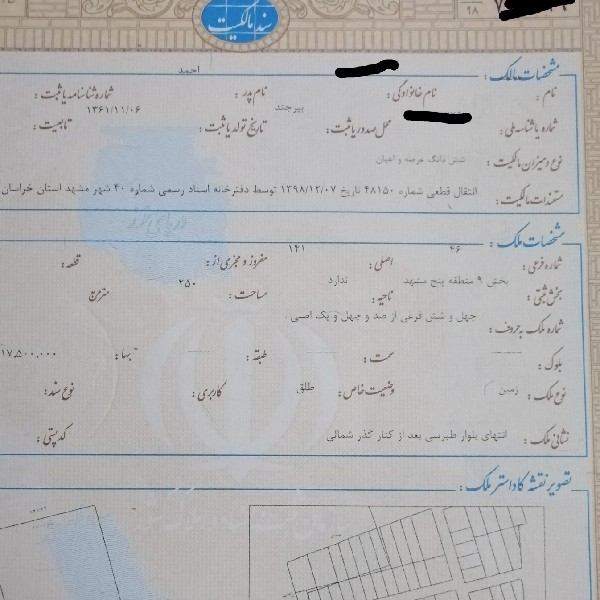 سند مالکیت
۱۸
مشخصات مالک :
احمد
نام : نام خانوادگی : نام پدر : شماره شناسنامه یا ثبت :
بیرجند ۱۳۶۱/۱۱/۰۶
شماره یا شناسه ملی : محل صدور یا ثبت : تاریخ تولد یا ثبت : تابعیت :
نوع و میزان مالکیت : شش دانگ عرصه و اعیان
مستندات مالکیت : انتقال قطعی شماره ۴۸۱۵۰ تاریخ ۱۳۹۸/۱۲/۰۷ توسط دفترخانه اسناد رسمی شماره ۴۰ شهر مشهد استان خراسان
مشخصات ملک :
۴۶ ۱۴۱
شماره فرعی : اصلی : مفروز و مجزی از : قطعه :
بخش ثبتی : بخش ۹ منطقه پنج مشهد ناحیه : ندارد مساحت : ۲۵۰ مترمربع
شماره ملک به حروف : چهل و شش فرعی از صد و چهل و یک اصلی .
بلوک : سمت : طبقه : بها : ۱۷,۵۰۰,۰۰۰
نوع ملک : زمین وضعیت خاص : طلق کاربری : نوع سند :
نشانی ملک : انتهای بلوار طبرسی بعد از کنار گذر شمالی کدپستی :
تصویر نقشه کاداستر ملک :